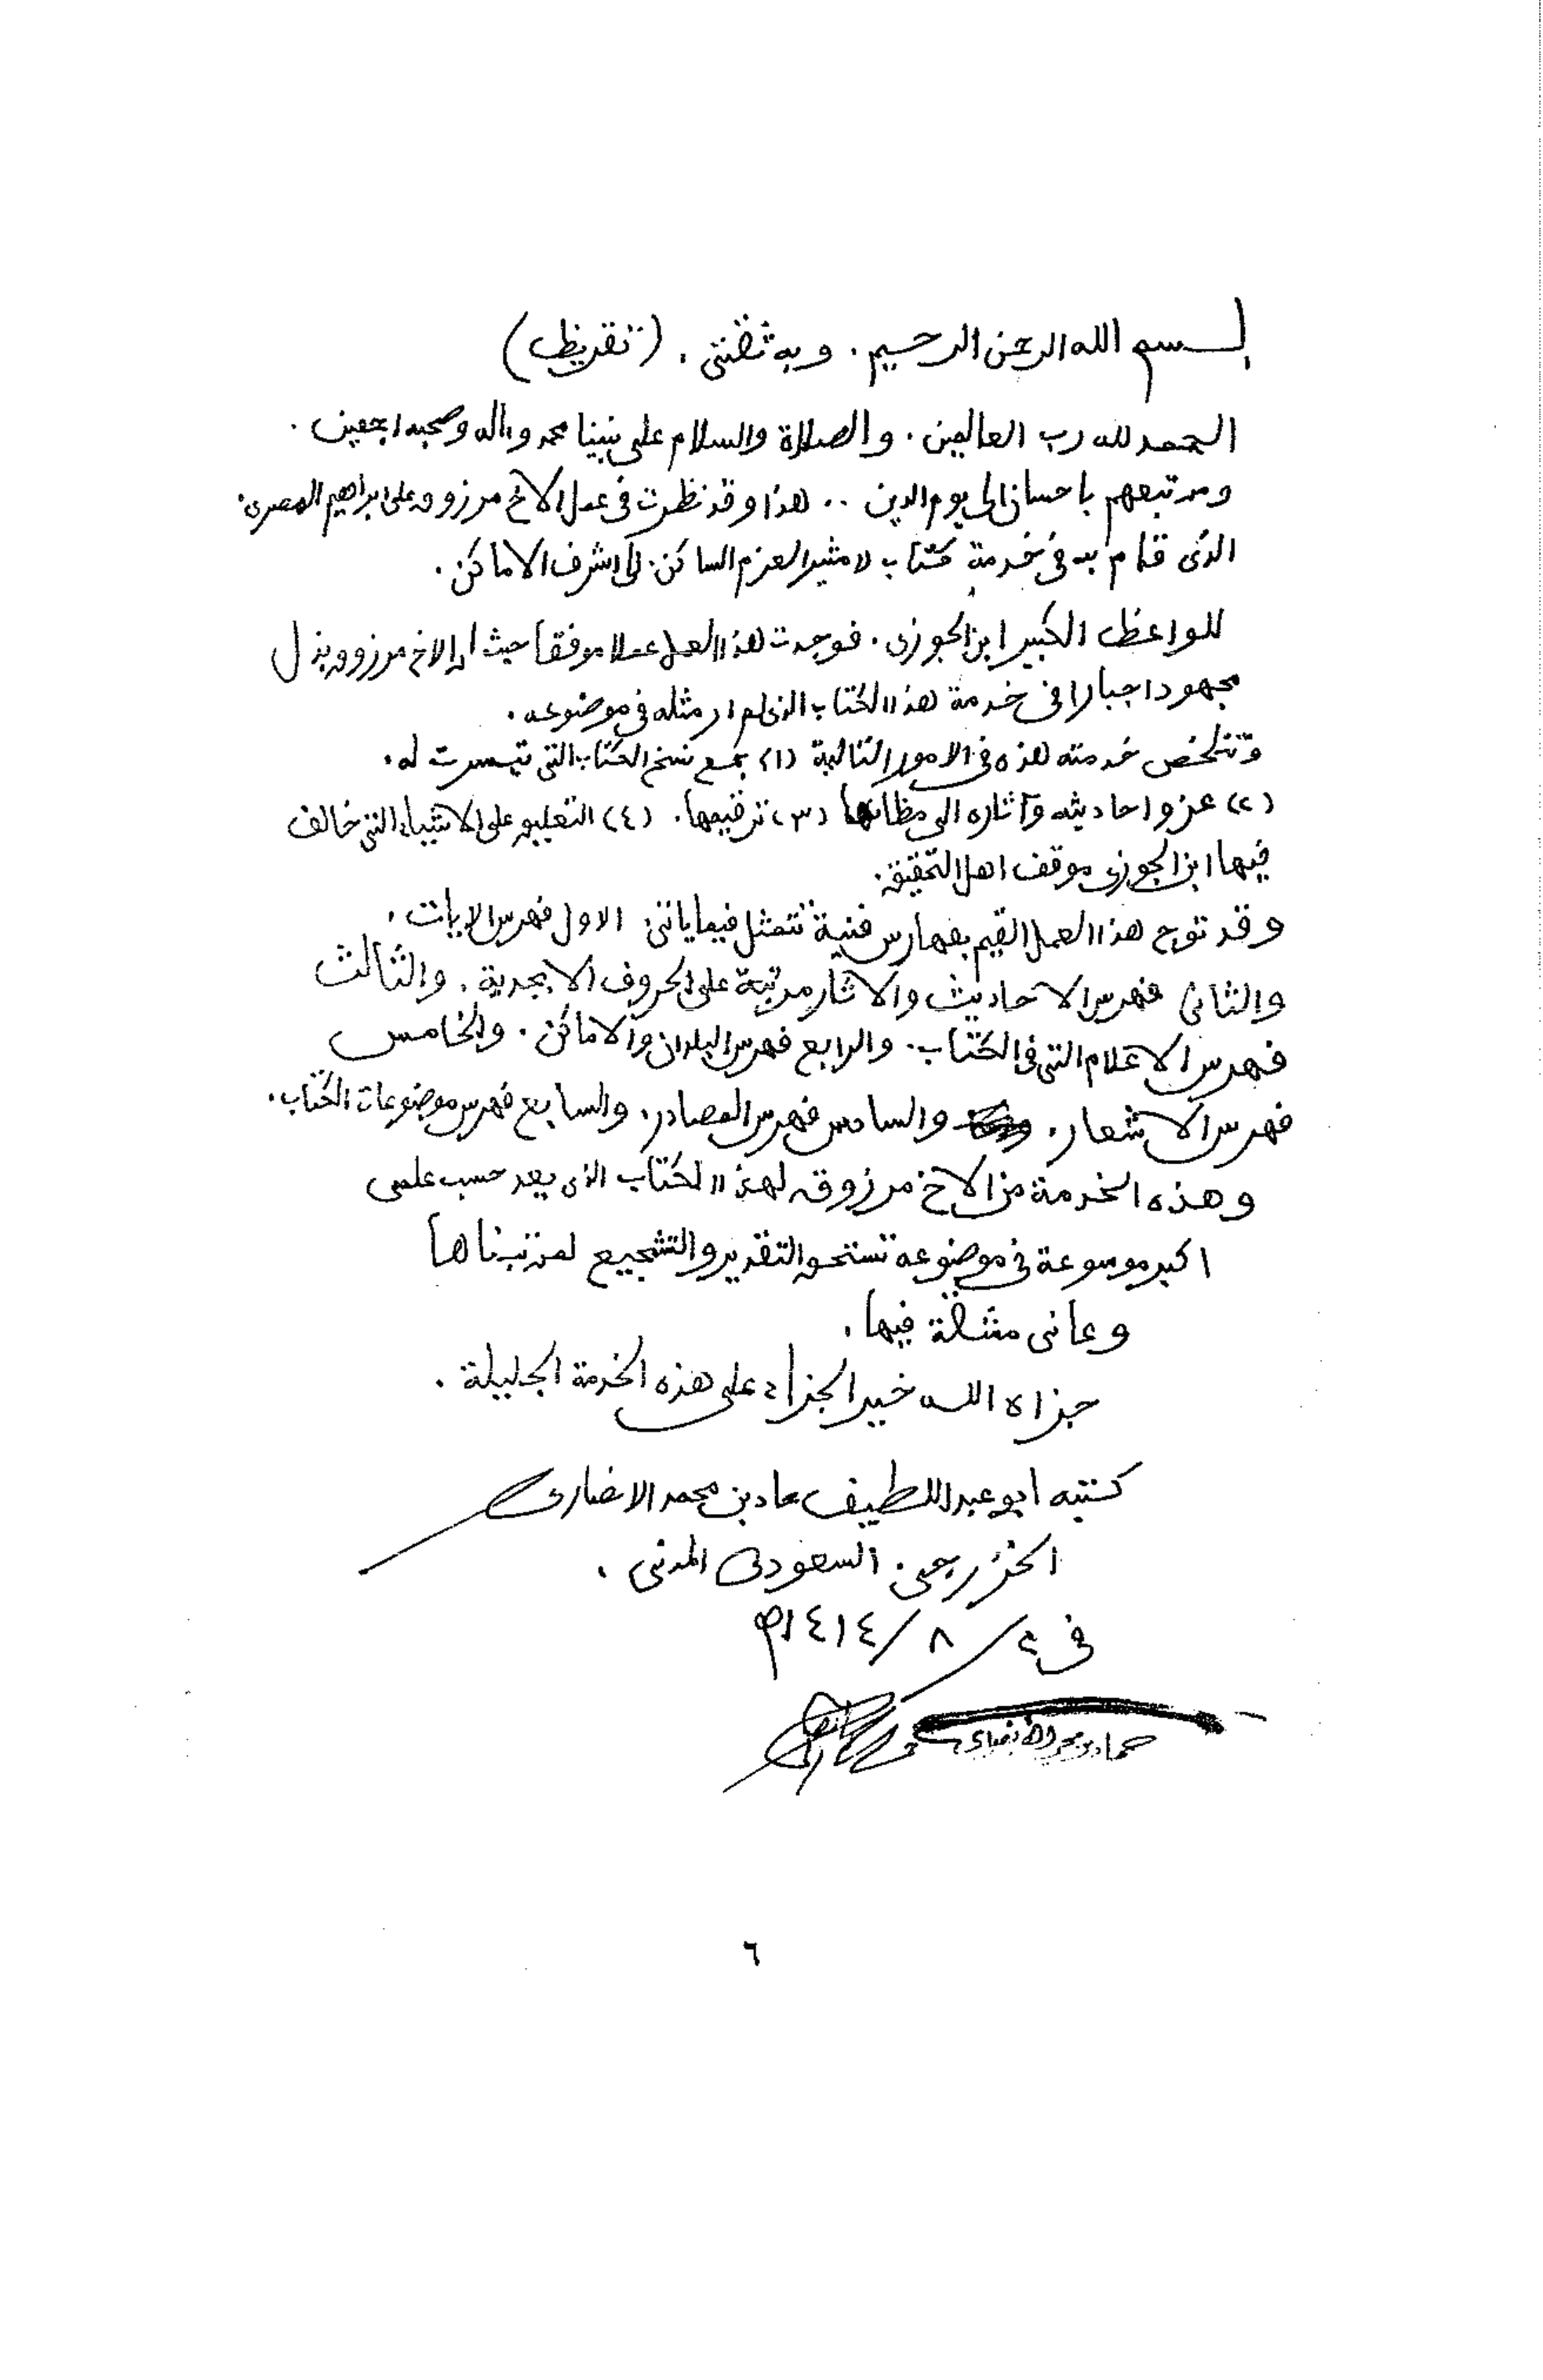 بسم الله الرحمن الرحيم . وبه ثقتي . (تقريظ)
الحمد لله رب العالمين . والصلاة والسلام على نبينا محمد وآله وصحبه اجمعين .
ومن تبعهم باحسان الى يوم الدين .. هذا وقد نظرت في عمل الاخ مرزوق على ابراهيم المصري .
الذي قام به في خدمة كتاب لا مثير العزم الساكن الى اشرف الاماكن .
للواعظ الكبير ابن الجوزي . فوجدت هذا العمل عملا موفقا حيث ان الاخ مرزوق بذل
مجهودا جبارا في خدمة هذا الكتاب الذي لم ار مثله في موضوعه .
وتتلخص خدمته هذه في الامور التالية (١) جمع نسخ الكتاب التي تيسرت له .
(٢) عزو احاديثه وآثاره الى مظانها (٣) ترقيمها . (٤) التعليق على الاشياء التي خالف
فيها ابن الجوزي موقف اهل التحقيق .
وقد توج هذا العمل القيم بفهارس فنية تتمثل فيما ياتي الاول فهرس الايات .
والثاني فهرس الاحاديث والاثار مرتبة على الحروف الابجدية . والثالث
فهرس الاعلام التي في الكتاب . والرابع فهرس البلدان والاماكن . والخامس
فهرس الاشعار . والسادس فهرس المصادر . والسابع فهرس موضوعات الكتاب .
وهذه الخدمة من الاخ مرزوق لهذا الكتاب الذي يعد حسب علمي
اكبر موسوعة في موضوعه تستحق التقدير والتشجيع لمن تبناها
وعانى مشقة فيها .
جزاه الله خير الجزاء على هذه الخدمة الجليلة .
كتبه ابو عبد اللطيف حماد بن محمد الانصاري
الخزرجي . السعودي المدني .
في ٢ / ٨ / ١٤١٤هـ
حماد بن محمد الأنصاري
٦